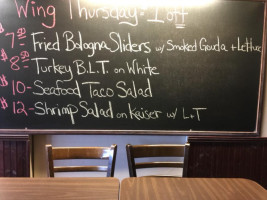 Wing Thursday · 1 off
$7.50 Fried Bologna Sliders w/ Smoked Gouda + Lettuce
$8.50 Turkey B.L.T. on White
$10- Seafood Taco Salad
$12- Shrimp Salad on Kaiser w/ L+T